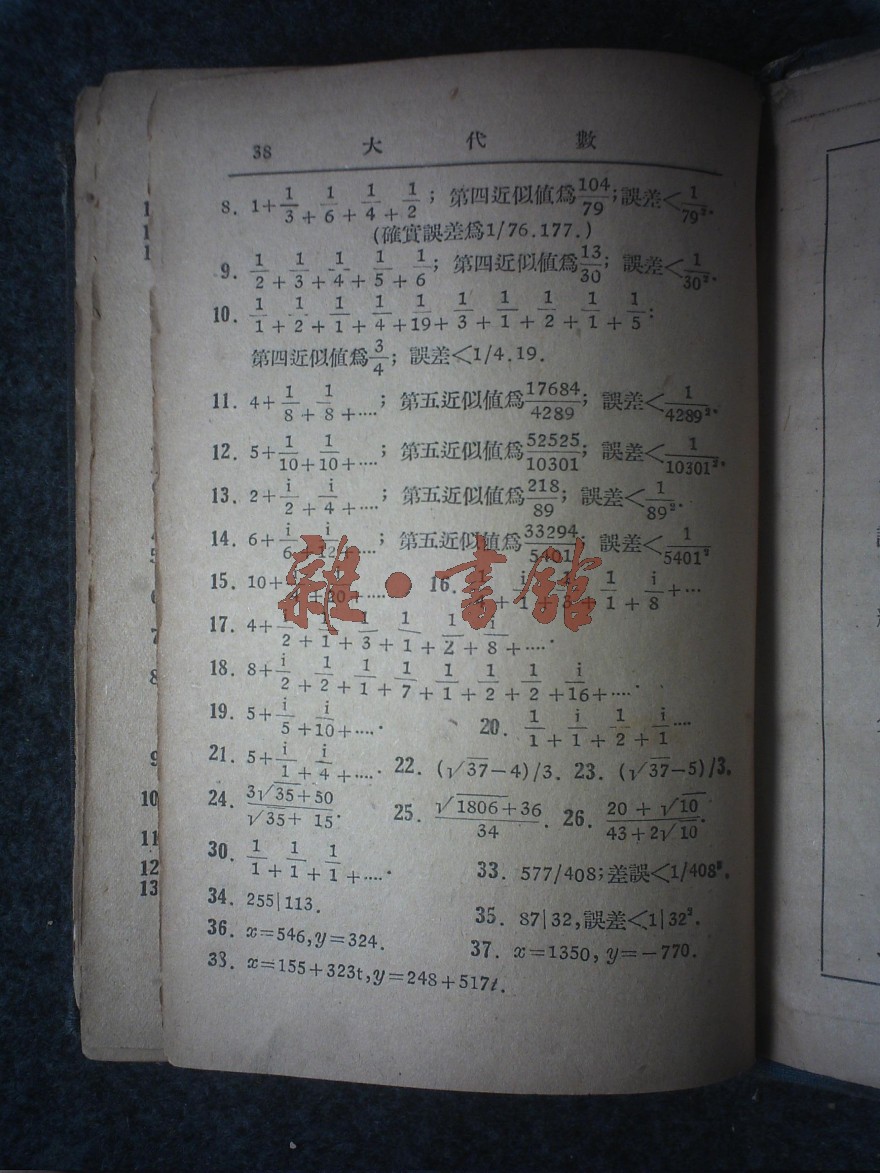 38 大 代 數
8. 1+1/3 + 1/6 + 1/4 + 1/2 ; 第四近似值爲104/79; 誤差<1/79².
(確實誤差爲1/76.177.)
9. 1/2 + 1/3 + 1/4 + 1/5 + 1/6; 第四近似值爲13/30; 誤差<1/30².
10. 1/1 + 1/2 + 1/1 + 1/4 + 1/19 + 1/3 + 1/1 + 1/2 + 1/1 + 1/5:
第四近似值爲3/4; 誤差<1/4.19.
11. 4+1/8 + 1/8 +····; 第五近似值爲17684/4289; 誤差<1/4289².
12. 5+1/10 + 1/10 +····; 第五近似值爲52525/10301; 誤差<1/10301².
13. 2+i/2 + i/4 +····; 第五近似值爲218/89; 誤差<1/89².
14. 6+i/6 + i/12 +····; 第五近似值爲33294/5401; 誤差<1/5401²
15. 10+ /4 + /20 +···· 16. 1/4 + i/1 + 1/3 + 1/1 + i/8 +···
17. 4+ /2 + 1/1 + 1/3 + 1/1 + 1/2 + i/8 +····.
18. 8+i/2 + 1/2 + 1/1 + 1/7 + 1/1 + 1/2 + 1/2 + i/16 +····.
19. 5+i/5 + i/10 +····. 20. 1/1 + i/1 + 1/2 + i/1 ····
21. 5+i/1 + i/4 +····. 22. (√37−4)/3. 23. (√37−5)/3.
24. 3√35+50/√35+ 15. 25. √1806+36/34. 26. 20 + √10/43+2√10.
30. 1/1 + 1/1 + 1/1 +····. 33. 577/408; 差誤<1/408².
34. 255|113. 35. 87|32, 誤差<1|32².
36. x=546, y=324. 37. x=1350, y=−770.
38. x=155+323t, y=248+517t.
雜·書館